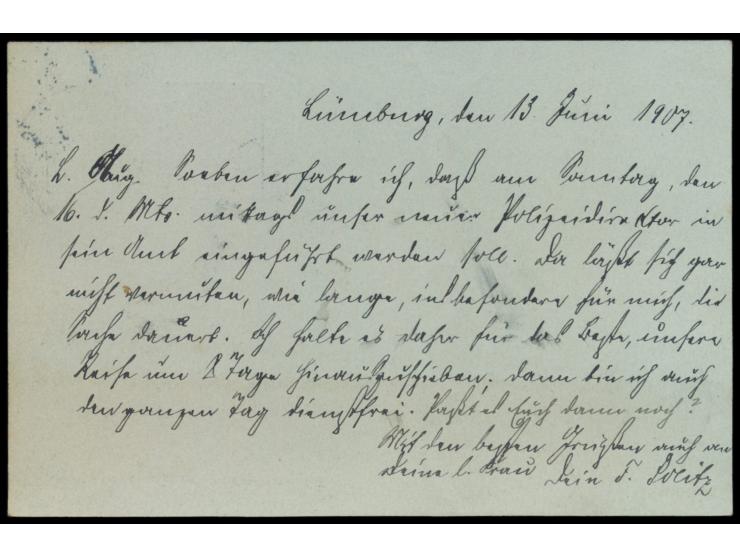 Lüneburg, den 13. Juni 1907.
L. Aug. Soeben erfahre ich, daß am Sonntag, den
16. d. Mts. mittags unser neuer Polizeidirektor in
sein Amt eingeführt werden soll. Da läßt sich gar
nicht vermuten, wie lange, insbesondere für mich, die
Sache dauert. Ich halte es daher für das Beste, unsere
Reise um 8 Tage hinauszuschieben, dann bin ich auch
den ganzen Tag dienstfrei. Paßt es Euch dann noch?
Mit den besten Grüßen auch an
Deine l. Frau Dein F. Politz